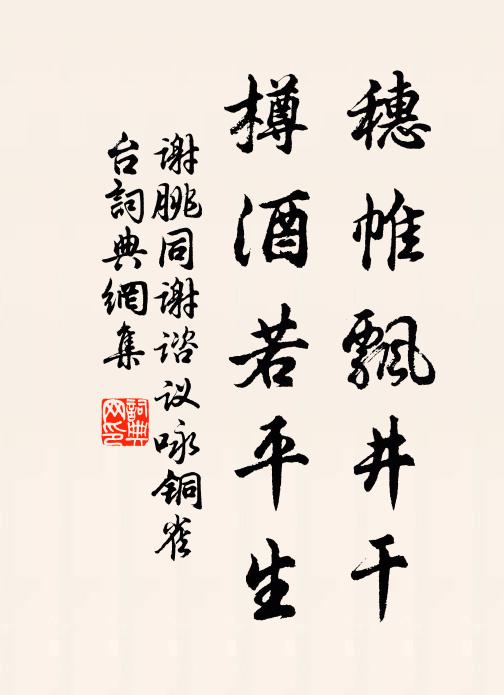 穗帷飘井干
樽酒若平生
谢朓同谢谘议咏铜雀
台詞典網集
詞典
网印